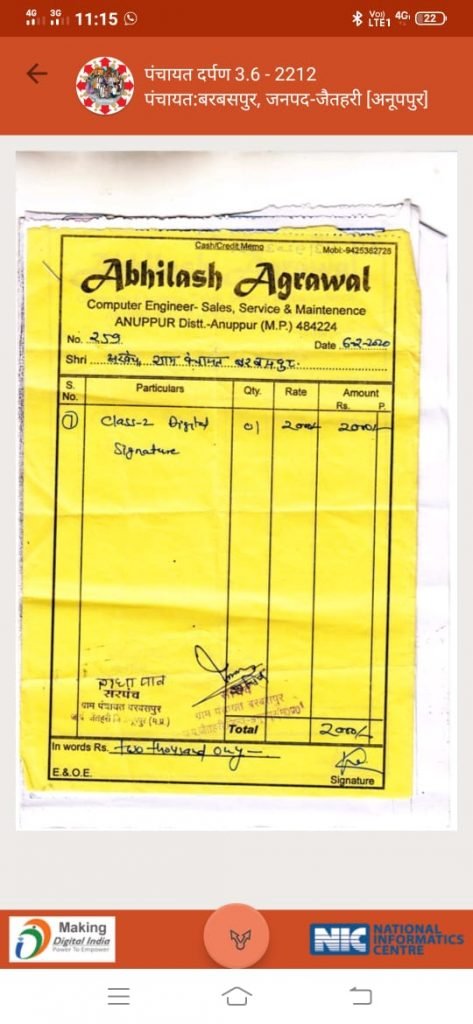 4G 3G 11:15 Vo) LTE1 4G 22
पंचायत दर्पण 3.6 - 2212
पंचायत:बरबसपुर, जनपद-जैतहरी [अनूपपुर]
Cash/Credit Memo Mobi:-9425362728
Abhilash Agrawal
Computer Engineer- Sales, Service & Maintenence
ANUPPUR Distt.-Anuppur (M.P.) 484224
No. 259 Date 6-2-2020
Shri ग्राम पंचायत बरबसपुर
S. No. Particulars Qty. Rate Amount Rs. P.
① Class-2 Digital 01 2000/- 2000/-
Signature
सरपंच
ग्राम पंचायत बरबसपुर
ग्राम पंचायत बरबसपुर
जैतहरी (म.प्र.)
Total 2000/-
In words Rs. two thousand only
E.&O.E. Signature
Making
Digital India
Power To Empower
NIC NATIONAL
INFORMATICS
CENTRE